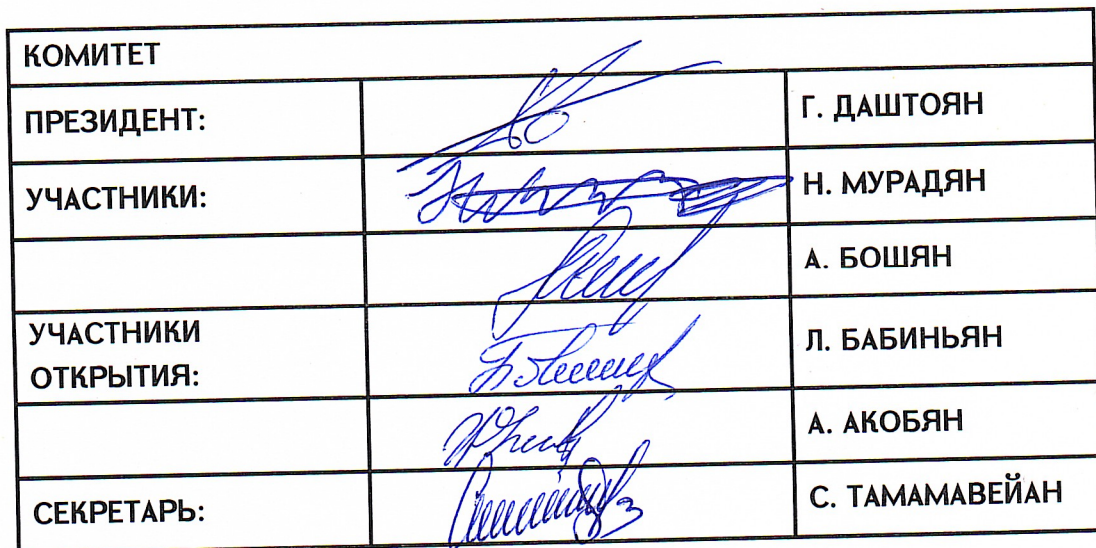 КОМИТЕТ
ПРЕЗИДЕНТ: Г. ДАШТОЯН
УЧАСТНИКИ: Н. МУРАДЯН
А. БОШЯН
УЧАСТНИКИ
ОТКРЫТИЯ: Л. БАБИНЬЯН
А. АКОБЯН
СЕКРЕТАРЬ: С. ТАМАМАВЕЙАН